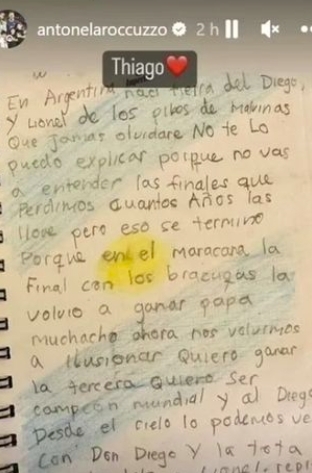 antonelaroccuzzo 2 h
Thiago
En Argentina naci tierra del Diego,
y Lionel de los pibes de Malvinas
Que Jamas olvidare No te Lo
puedo explicar porque no vas
a entender las finales que
Perdimos cuantos Años las
llore pero eso se termino
Porque en el maracana la
Final con los brazugas la
volvio a ganar papa
muchacho ahora nos volvimos
a ilusionar Quiero ganar
la tercera Quiero Ser
campeon mundial y al Diego
Desde el cielo lo podemos ve
con Don Diego y la tota